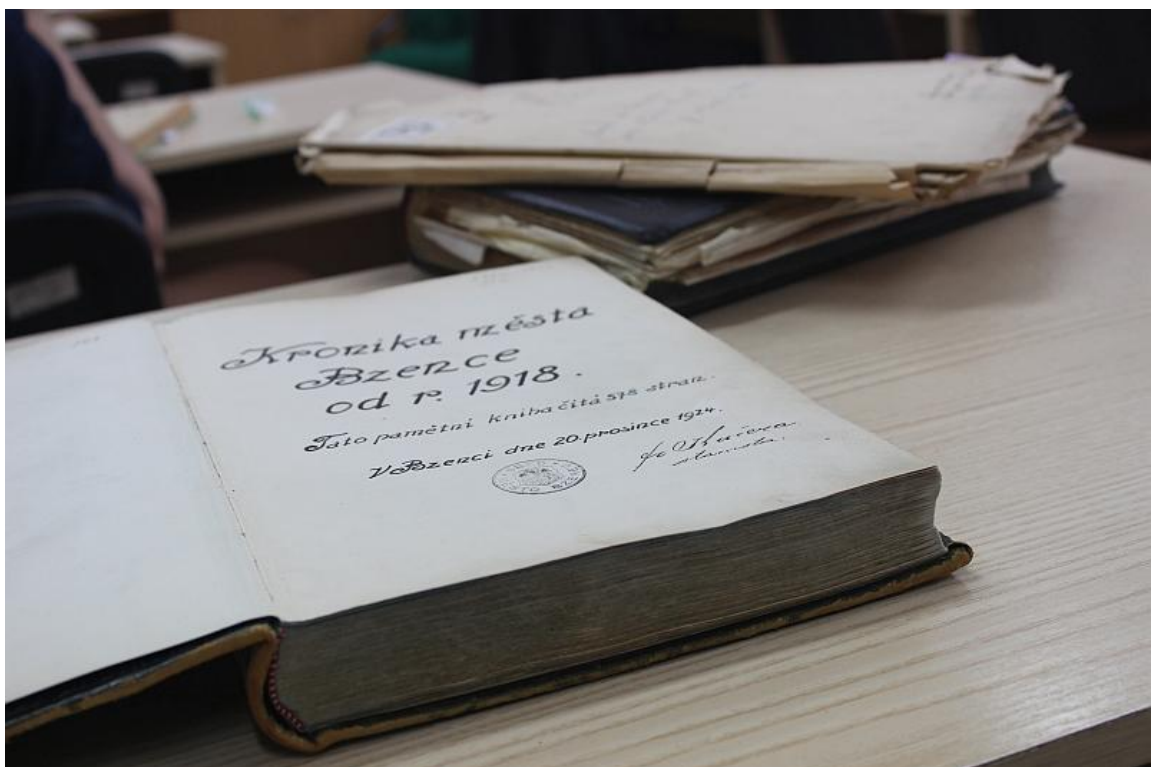 Kronika města
Bzence
od r. 1918.
Tato pamětní kniha čítá 578 stran.
V Bzenci dne 20. prosince 1924.
Kučera
starosta.